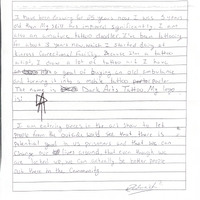 I have been drawing for 25 years now I was 5 years
old then. My skills has improved significantly. I am
also an amateur tattoo dweller. I've been tattooing
for about 3 years now which I started doing at
Correctional Facility. Became a tattoo
artist. I know a lot of tattoo art. I have
a goal of buying an old ambulance
and turning it into a mobile tattoo parlor.
The name is Dark Arts Tattoo. My logo
is:
I am entering pieces in the art show to let
people from the outside world see that there is
potential good in us prisoners and that we can
change our lives around, that even though we
are locked up, we can actually be better people
out there to the community.